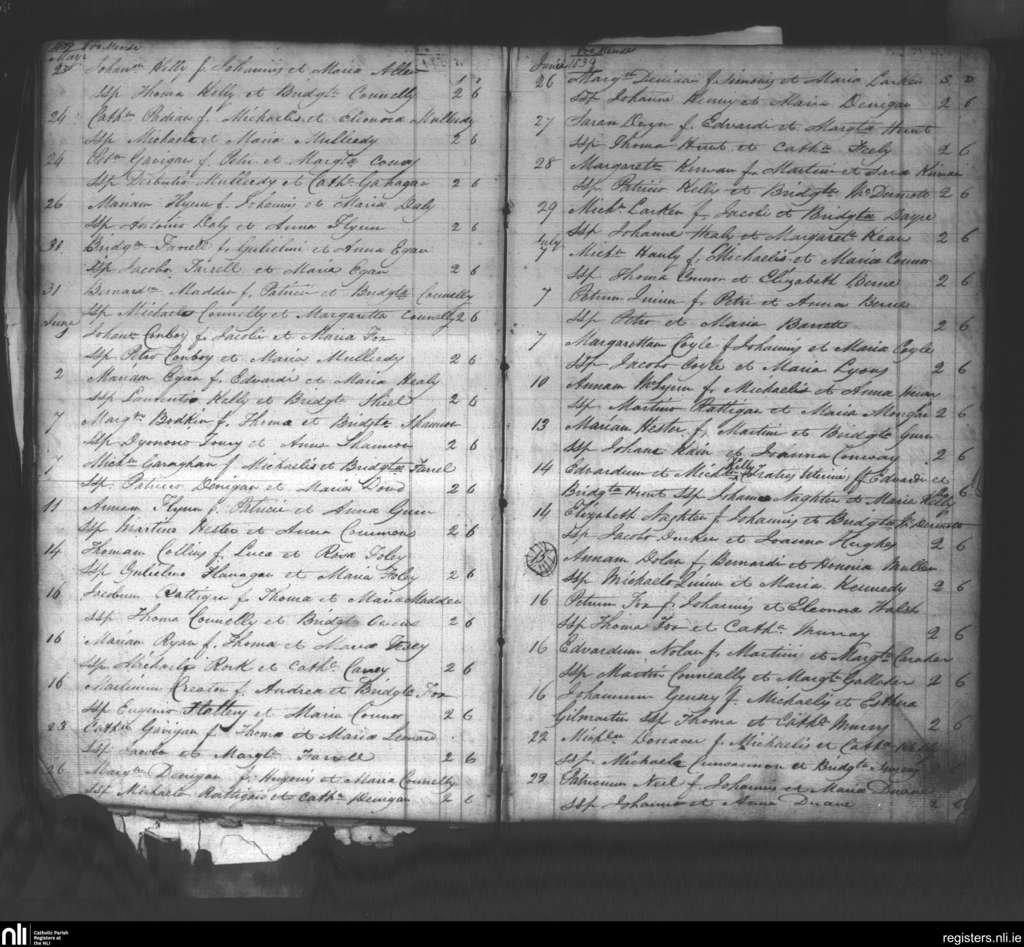 Pro Mense
Maii
Johan Kelly f. Johannis et Maria Allen
ssp Thoma Kelly et Bridgta Connelly 2 6
24 Cathn f. Michaelis et Eleonora Mulledy
ssp Michaele et Maria Mulleedy 2 6
24 Gavigan f. Petri et Margta
ssp Mulleedy et Cathn Gahagan 2 6
26 Mariam Flynn f. Johannis et Maria Daly
ssp Antonio Daly et Anna Flynn 2 6
30 Bridgtm Farrell f. Gulielmi et Anna Egan
ssp Jacobo Farrell et Maria Egan 2 6
31 Bernardm Madden f. Patricii et Bridgta Connelly
ssp Michaele Connelly et Margaretta Connelly 2 6
June
1 Johanm Conboy f. Jacobi et Maria Fox
ssp Petro Conboy et Maria Mulleedy 2 6
2 Mariam Egan f. Edwardi et Maria Healy
ssp Laurentio Kelly et Bridgta Shiel 2 6
7 Margtm Bodkin f. Thoma et Bridgta Shannon
ssp et Anna Shannon 2 6
7 Michlm Garaghan f. Michaelis et Bridgta Farrel
ssp Patricio Denigan et Maria Dowd 2 6
11 Annam Flynn f. Patricii et Anna Gunn
ssp Martino Hester et Anna Commons 2 6
14 Thomam Collins f. Luca et Rosa Foley
ssp Gulielmo Flanagan et Maria Foley 2 6
16 Rattigan f. Thoma et Maria Madden
ssp Thoma Connelly et Bridgta Owens 2 6
16 Mariam Ryan f. Thoma et Maria
ssp Michaele Rork et Cathn 2 6
16 Martinum Creaton f. Andrea et Bridgta Fox
ssp Eugenio et Maria Connor 2 6
23 Cathn Gavigan f. Thoma et Maria Lennard
ssp Jacobo et Margta Farrell 2 6
26 Margtm Denigan f. Eugenii et Maria Connelly
ssp Michaele Rattigan et Cathn Denigan 2 6
Pro Mense
Junii 1839
26 Margtm Denican f. Simonis et Maria Larken
ssp Johanne Kenny et Maria Denigan 2 6
27 Saram f. Edvardi et Margta Hunt
ssp Thoma Hunt et Cathn Feely 2 6
28 Margarettm Kirwan f. Martini et Sara Kirwan
ssp Patricio Kelly et Bridgta McDermott 2 6
29 Michm Larken f. Jacobi et Bridgta
ssp Johanne Healy et Margaretta 2 6
July
7 Michlm Hanly f. Michaelis et Maria Connor
ssp Thoma Connor et Elizabeth Berne 2 6
7 Petrum Quinn f. Petri et Anna Berne
ssp Petro et Maria Barrett 2 6
7 Margarettam Coyle f. Johannis et Maria Coyle
ssp Jacobo Coyle et Maria Lyons 2 6
10 Annam f. Michaelis et Anna
ssp Martino Rattigan et Maria 2 6
13 Mariam Hester f. Martini et Bridgta Gunn
ssp Johane Kain et Joanna Conway 2 6
14 Edvardum et Michlm Kelly f. Edvardi et
Bridgta Hunt ssp Johanne Naghten et Maria Kelly 6
14 Elizabeth Naghten f. Johannis et Bridgta
ssp Jacobo et Joanna Hughes 2 6
15
Annam Dolan f. Bernardi et Honoria Mullen
ssp Michaele Quinn et Maria Kennedy 2 6
16 Petrum Fox f. Johannis et Eleonora Walsh
ssp Thoma Fox et Cathn Murray 2 6
16 Edvardum Nolan f. Martini et Margta
ssp Martin Conneally et Margta Gallaher 2 6
16 Johannum f. Michaelis et Esthera
Gilmartin ssp Thoma et Cathn Murray 2 6
22 Michlm f. Michaelis et Cathn Kelly
ssp Michaele Concannon et Bridgta
23 Patricium Neil f. Johannis et Maria Duane
ssp Johanne et Anna Duane 2 6
nli
Catholic Parish
Registers at
the NLI
registers.nli.ie